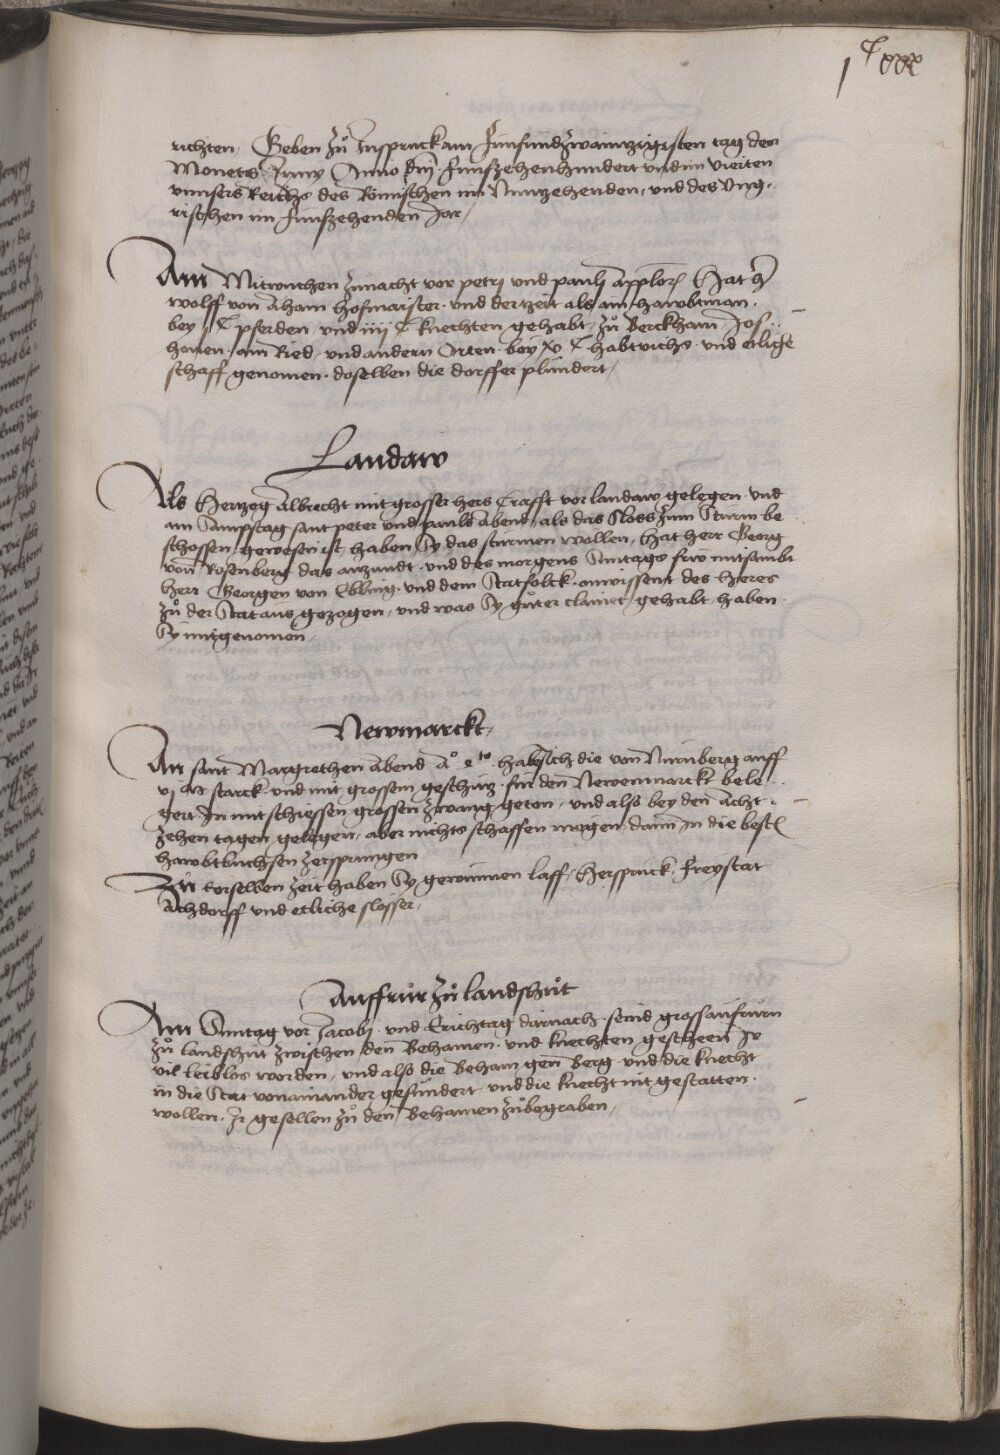 1 C xxx
richten, Geben zů Insprugk am Funfundzwaintzigisten tag des
Monets Junij Anno dni funfzehenhundert und im vierten
unnsers Reichs des Römischen im Nunzehenden, und des Ung„
rischen im funfzehenden Jar,
Am Mitwuchen zunacht vor petrj und paulj applor(um) Hat h(er)
wolff von Aham hofmaister, und der zeit als ain hawbtman,
bey j C pferden, und iiij C knechten, gehabt, zů Berckham, Jos„
hauen, am Ried, und andern Orten, bey xv C habtvichs, und etliche
schaff genomen, doselben die dorffer plundert,
Landaw
Als Hertzog Albrecht mit grosser hers Crafft vor landaw gelegen, und
am Sampstag sant peter und pauls Abend, als das Sloss zum Sturm be„
schossen gewesen ist, haben Sy das sturmen wollen, hat herr Georg
von Rosenberg das anzundt, und des morgens Suntags frwe mitsambt
herr Georgen von Ebling, und dem Statfolck, unwissent des Heres
zů der Stat aus gezogen, und was Sy gůter clainet gehabt haben
Sy mitgenomen,
Newmarckt,
An sant Margrethen Abend A° 4to. haben sich die von Nurmberg auff
vj M starck und mit grossem geschutz für den Newenmarckt bele„
gert In mit schiessen grossen zwang geton, und also bey den Acht„
zehen tagen gelegen, aber nichts schaffen mogen, dann In die besten
hawbtbuchsen zersprungen
Zů derselben zeit haben Sy gewunnen Lauff, Herspruck, Freystat
Altdorff und etliche slosser,
Auffrůr zů landshůt
Am Suntag vor Jacobj, und Erichtag darnach, seind gross aufrurn
zů landshut zwischen den Behamen, und knechten, geschehen Ir
vil leiblos worden, und also die Beham gen Berg, und die knecht
in die Stat vonainander gesundert, und die knecht nit gestatten
wollen, Ir gesellen zů den Behamen zůbegraben,